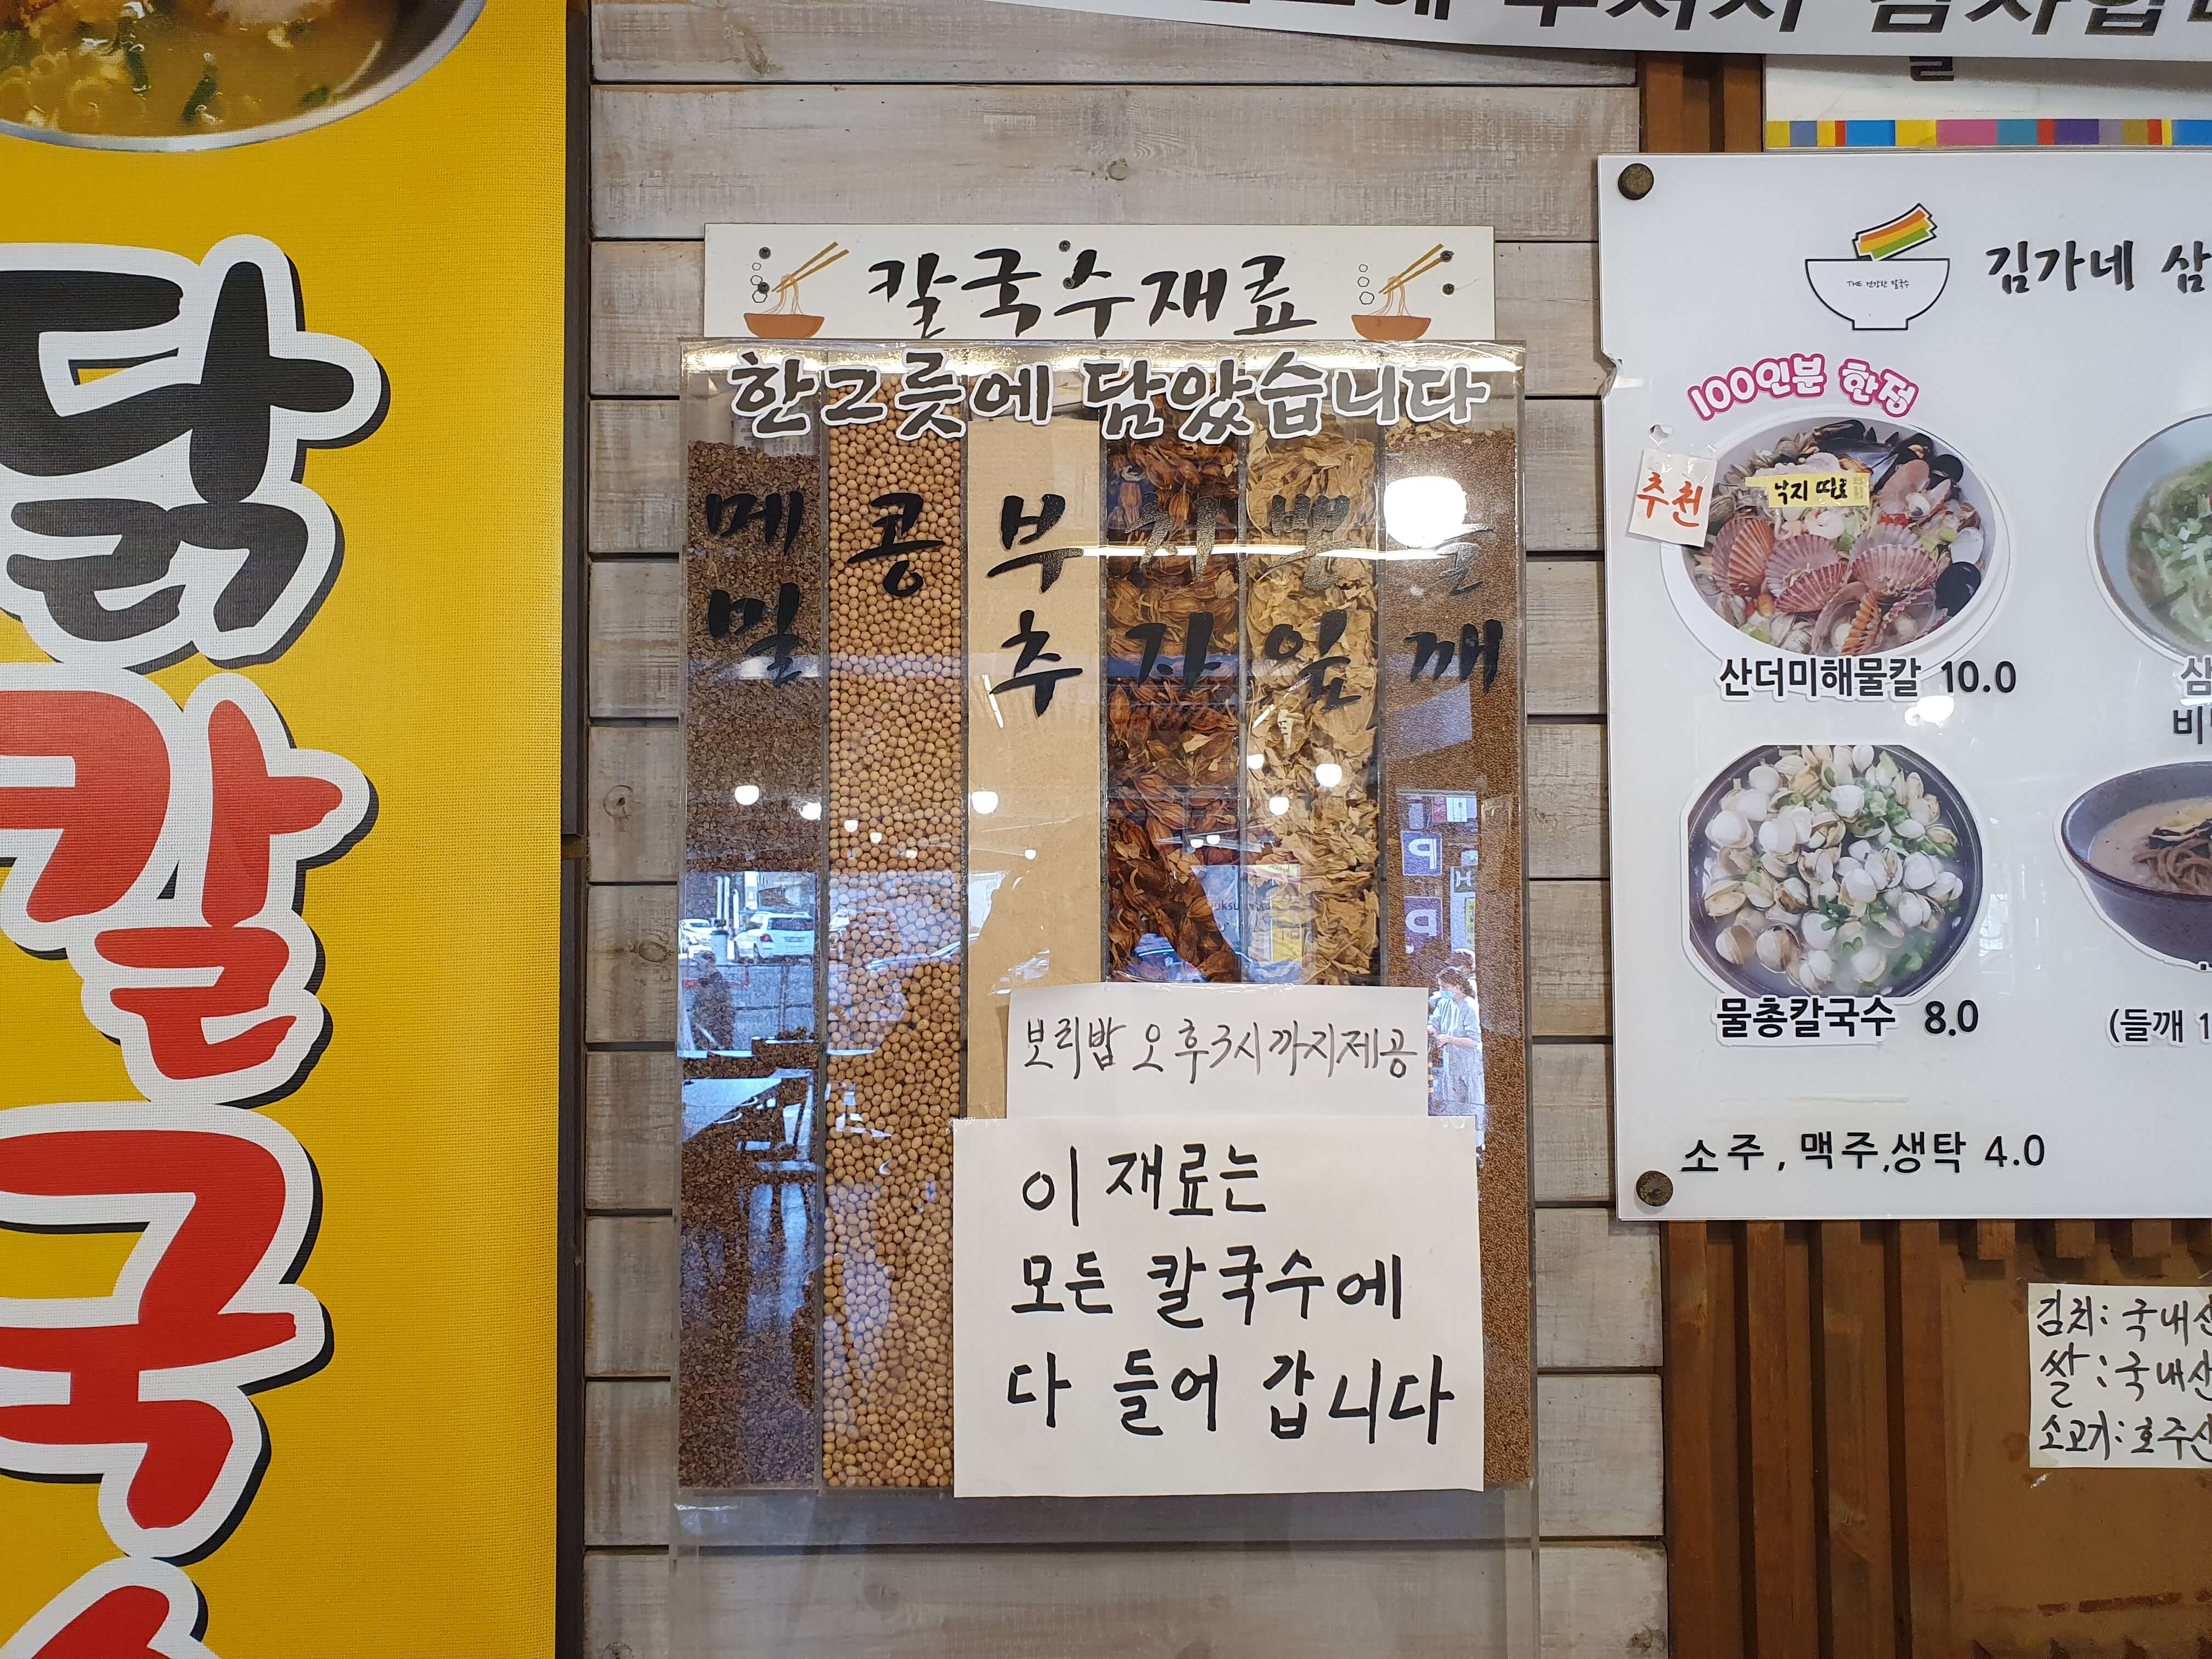 닭
칼
국
칼국수재료
한그릇에 담았습니다
메밀
콩
부추
치자
뽕잎
들깨
보리밥 오후3시까지제공
이 재료는
모든 칼국수에
다 들어 갑니다
THE 건강한 칼국수
김가네
100인분 한정
추천
낙지 따로
산더미해물칼 10.0
물총칼국수 8.0
(들깨
소주, 맥주,생탁 4.0
김치: 국내산
쌀: 국내산
소고기: 호주산